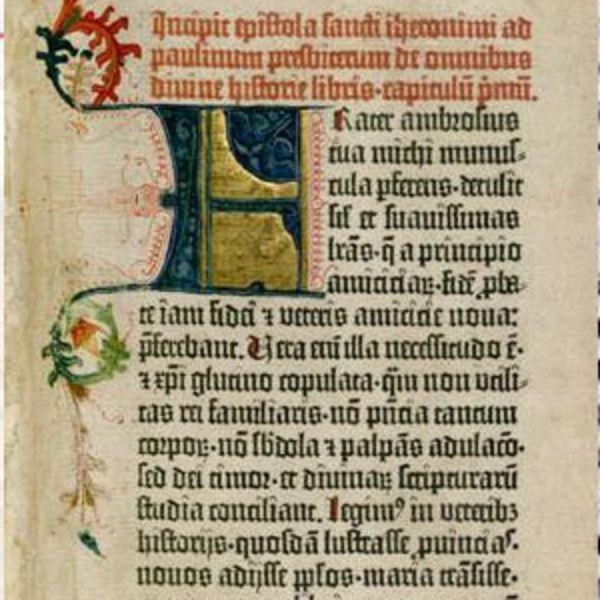 Incipit epistola sancti iheronimi ad
paulinum presbiterum de omnibus
divine historie libris·capitulū pͥmū.
Frater ambrosius
tua michi munus-
cula pferens·detulit
sil' et suavissimas
lr̄as·q̄ a principio
amiciciaꝝ·fidē ꝓba-
te iam fidei ⁊ veteris amicicie nova:
pͬferebant. Vera em̄ illa necessitudo ē·
⁊ xp̄i glutino copulata·qͣm non utili-
tas rei familiaris·nō pn̄cia tantum
corpoꝝ·nō sb̓dola ⁊ palpās adulac̄o·
sed dei timor·et divinaꝝ scripturarū
studia conciliant. Legimꝰ in veteribꝫ
historijs·quosdā lustrasse ꝓuincias·
novos adijsse ppl̓os·maria trāsisse·